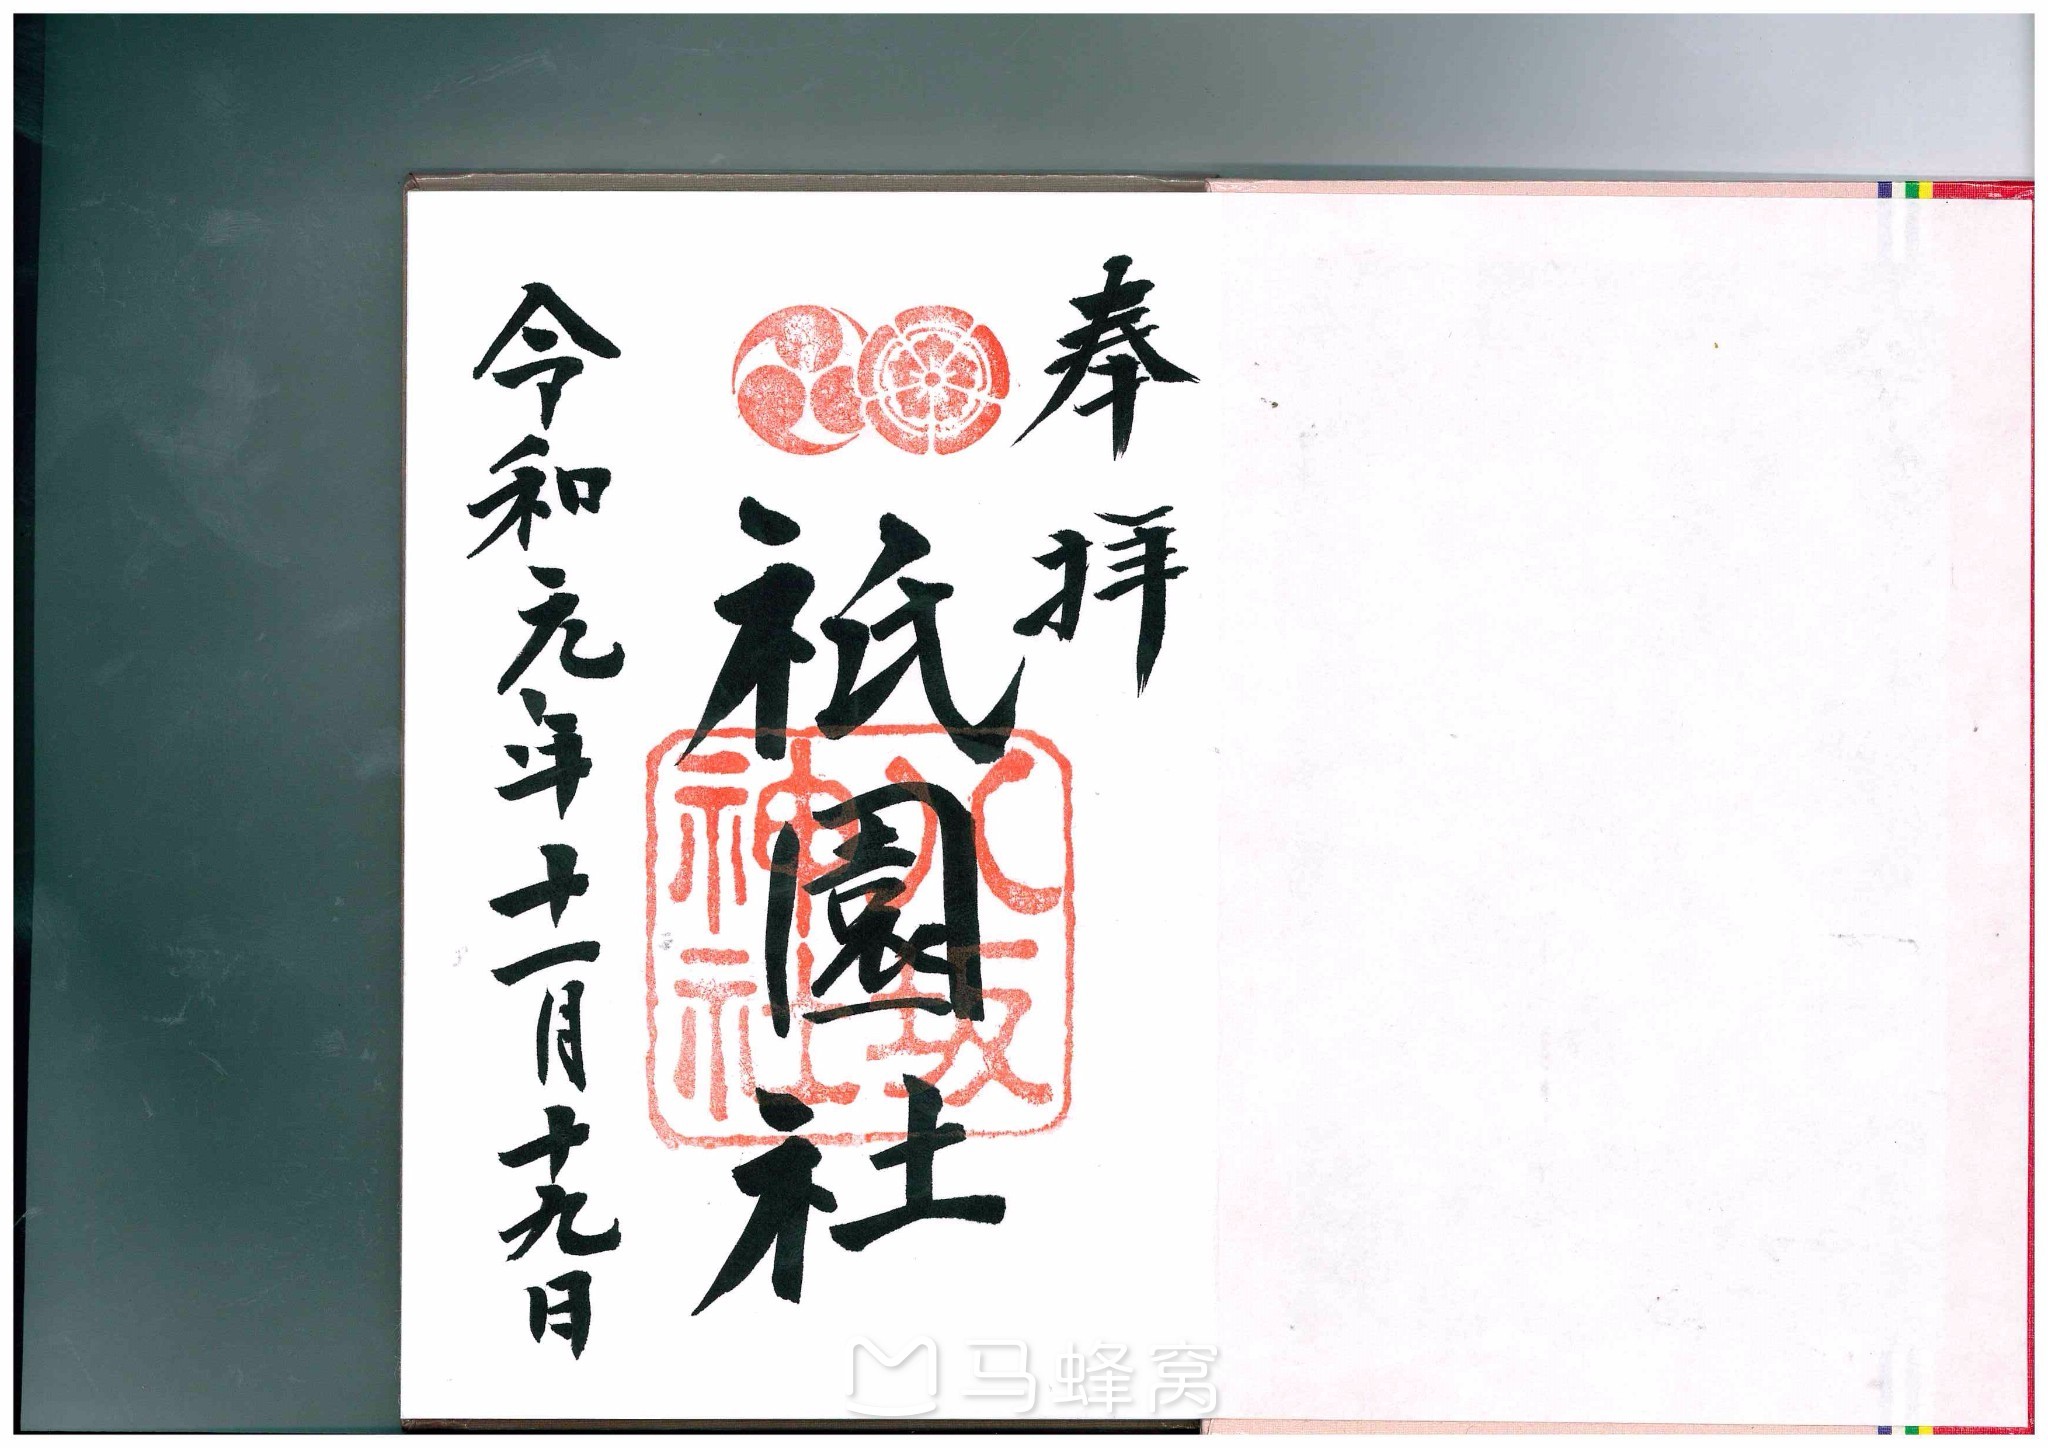 奉拝
祇園社
八坂
神社
令和元年十一月十九日
马蜂窝